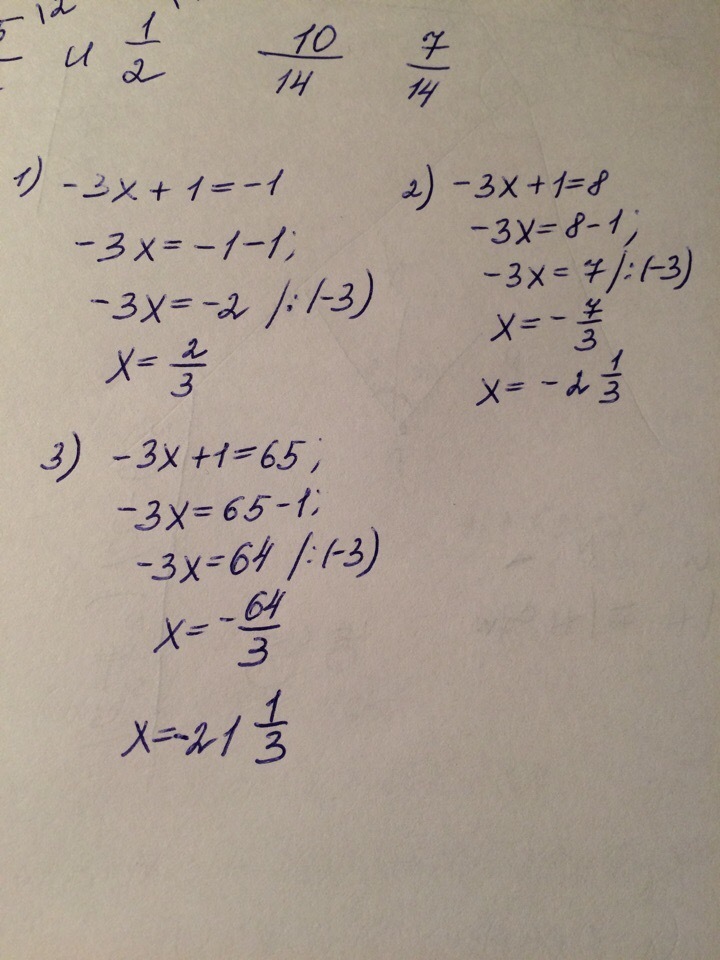 5 \2 и 1/2 10/14 7/14
1) -3x + 1 = -1
-3x = -1-1;
-3x = -2 /:(-3)
x = 2/3
2) -3x+1=8
-3x=8-1;
-3x=7/:(-3)
x=-7/3
x=-2 1/3
3) -3x+1=65;
-3x=65-1;
-3x=64 /:(-3)
x=-64/3
x=-21 1/3